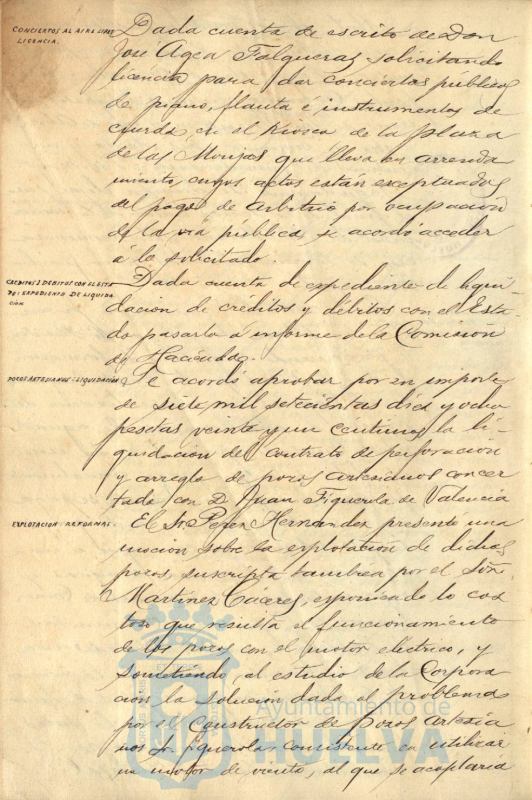 CONCIERTOS AL AIRE LIBRE
LICENCIA.
Dada cuenta de escrito de Don
José Agea Falgueras solicitando
licencia para dar conciertos públicos
de piano, flauta é instrumentos de
cuerda, en el Kiosco de la plaza
de las Monjas que lleva en arrenda
miento, cuyos actos están exceptuados
del pago de arbitrio por ocupación
de la vía pública, se acordó acceder
á lo solicitado.
CREDITOS Y DEBITOS CON EL ESTA
DO: EXPEDIENTE DE LIQUIDA
CIÓN
Dada cuenta de expediente de liqui-
dación de créditos y débitos con el Esta-
do pasarlo á informe de la Comisión
de Hacienda.
POZOS ARTESIANOS: LIQUIDACIÓN
Se acordó aprobar por en importe
de siete mil setecientas diez y ocho
pesetas veinte y un céntimos la li-
quidación del contrato de perforación
y arreglo de pozos artesianos concer
tado con D. Juan Figuerola de Valencia
EXPLOTACION: REFORMAS.
El Sr. Perez Hernandez presentó una
moción sobre la explotación de dichos
pozos, suscripta tambien por el Señor
Martinez Caceres, exponiendo lo cos
toso que resulta el funcionamiento
de los pozos con el motor electrico, y
sometiendo, al estudio de la Corpora
ción la solución dada al problema
por el Constructor de Pozos Artesia
nos Sr. Figuerola, consistente en utilizar
un motor de viento, al que se acoplaria
Ayuntamiento de
HUELVA